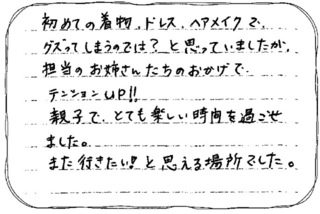 初めての着物、ドレス、ヘアメイクで、
グズってしまうのでは？と思っていましたが、
担当のお姉さんたちのおかげで
テンションUP!!
親子で、とても楽しい時間を過ごせ
ました。
また行きたい！と思える場所でした。